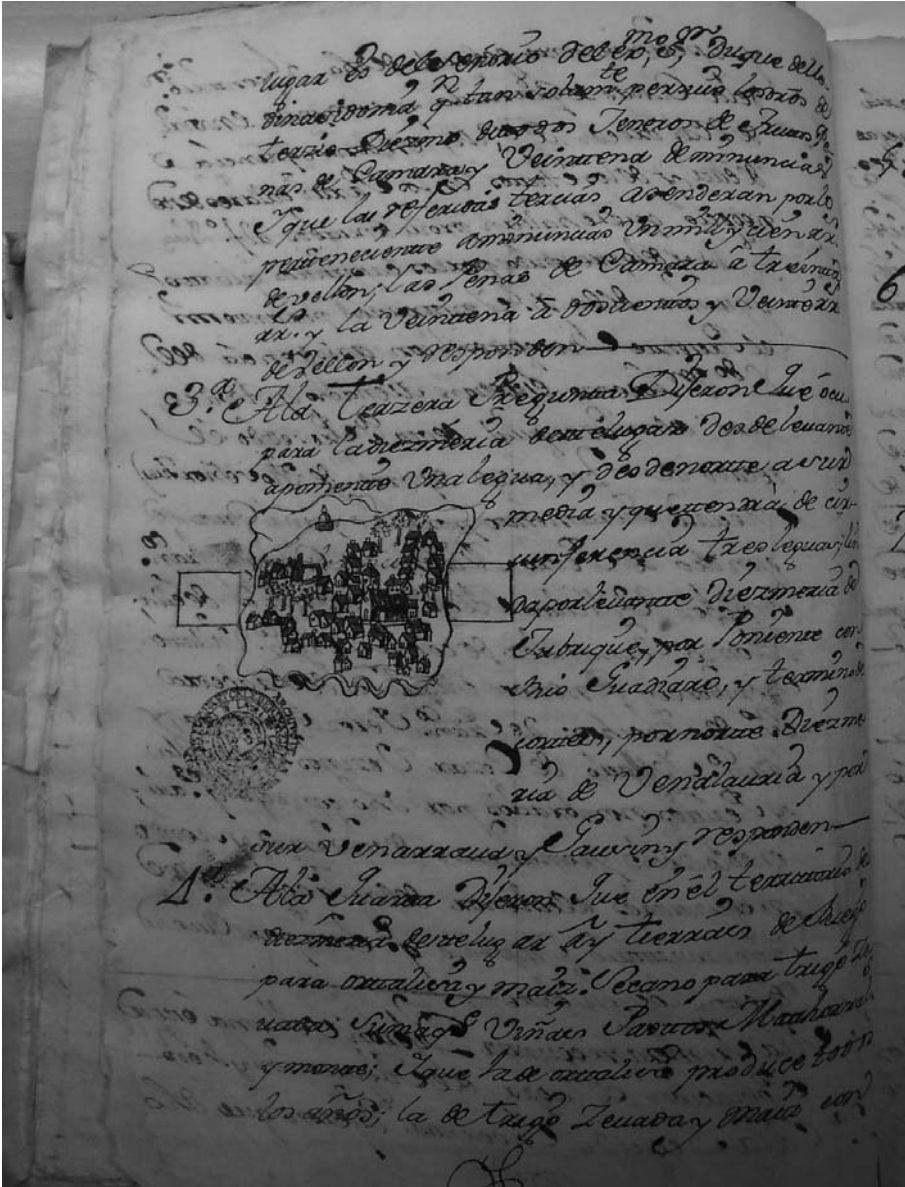 lugar es del señorio del ex,mo Sr, Duque de
dinasidonia qn tan solamte percive los dros de
terzio Diezmo de todos Jeneros de Pe
nas de Camara y Veintena de minuncias
Y que las referidas tercias asenderan por lo
perteneciente a minuncias Un mil y cien rr.
de vellon; las Penas de Camara â treinta
rr. y la Veintena â doscientos y Veinte rr
de Vellon y responden
3.a A la terzera Pregunta Dijeron Que ôcu
para la diezmeria deste lugar desde levante
a poniente Una legua, y desde norte a sur
media y que tendra de cir-
cunferencia tres leguas; lin
da por levante Diezmeria de
Jubrique, por Poniente con
Rio Guadiaro, y termino de
cortes, por norte Diezme
ria de Venalauria y por
sur Venarrava y Gausin y responden
4.a A la Quarta Dijeron Que en el territorio de
diezmeria deste lugar ay tierras de Riego
para ortaliza y maiz. Secano para trigo Ze
vada; Sumaqe Viñas Pastos Matorrales
y monte; Y que la de ortaliza produce todos
los años; la de trigo Zevada y maiz con
6